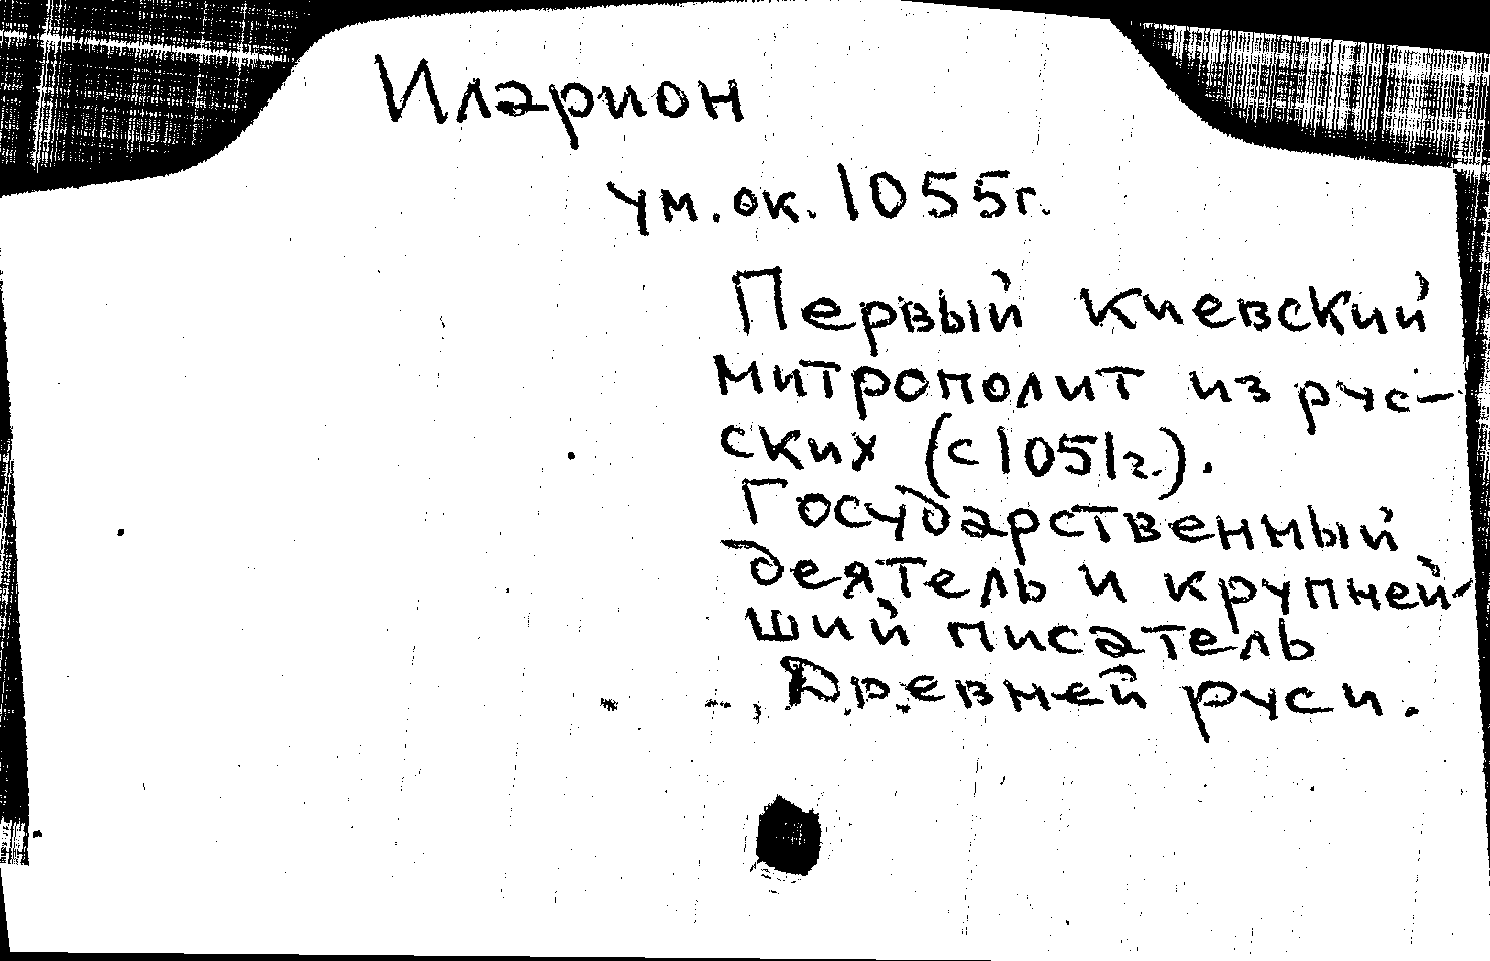 Иларион
ум. ок. 1055г.
Первый киевский
митрополит из рус-
ских (с 1051г.).
Государственный
деятель и крупней-
ший писатель
Древней руси.